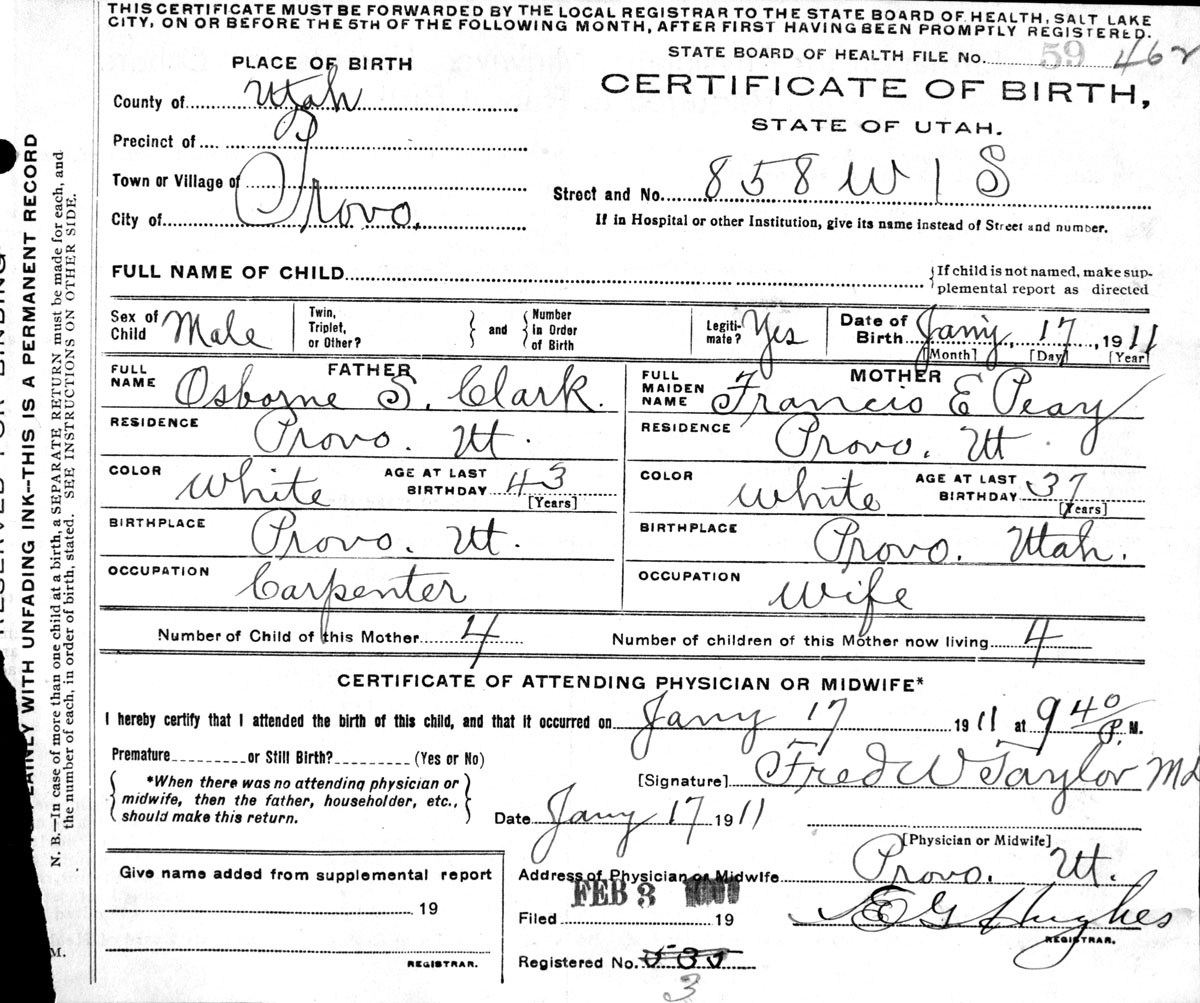 THIS CERTIFICATE MUST BE FORWARDED BY THE LOCAL REGISTRAR TO THE STATE BOARD OF HEALTH, SALT LAKE
CITY, ON OR BEFORE THE 5TH OF THE FOLLOWING MONTH, AFTER FIRST HAVING BEEN PROMPTLY REGISTERED.
STATE BOARD OF HEALTH FILE No. 59 462
PLACE OF BIRTH
CERTIFICATE OF BIRTH,
STATE OF UTAH.
County of Utah
Precinct of
Town or Village of
City of Provo.
Street and No. 858 W 1 S
If in Hospital or other Institution, give its name instead of Street and number.
FULL NAME OF CHILD
{If child is not named, make sup-
plemental report as directed
Sex of Child Male
Twin, Triplet, or Other? } and { Number in Order of Birth
Legiti-mate? Yes
Date of Birth Jany, 17, 1911
[Month] [Day] [Year]
FATHER
FULL NAME Osborne S. Clark.
RESIDENCE Provo. Ut.
COLOR White AGE AT LAST BIRTHDAY 43 [Years]
BIRTHPLACE Provo. Ut.
OCCUPATION Carpenter
MOTHER
FULL MAIDEN NAME Francis E Peay
RESIDENCE Provo. Ut.
COLOR White AGE AT LAST BIRTHDAY 37 [Years]
BIRTHPLACE Provo. Utah.
OCCUPATION Wife
Number of Child of this Mother 4 Number of children of this Mother now living 4
CERTIFICATE OF ATTENDING PHYSICIAN OR MIDWIFE*
I hereby certify that I attended the birth of this child, and that it occurred on Jany 17 1911 at 9 40 P. M.
Premature or Still Birth? (Yes or No)
{ *When there was no attending physician or
midwife, then the father, householder, etc.,
should make this return. }
[Signature] Fred W Taylor Md
Date Jany 17 1911
[Physician or Midwife]
Address of Physician or Midwife Provo. Ut.
Give name added from supplemental report
19
REGISTRAR.
FEB 3
Filed 19
E G Hughes
REGISTRAR.
Registered No.
3
RESERVED FOR BINDING
PLAINLY WITH UNFADING INK--THIS IS A PERMANENT RECORD
N. B.—In case of more than one child at a birth, a SEPARATE RETURN must be made for each, and
the number of each, in order of birth, stated. SEE INSTRUCTIONS ON OTHER SIDE.
M.